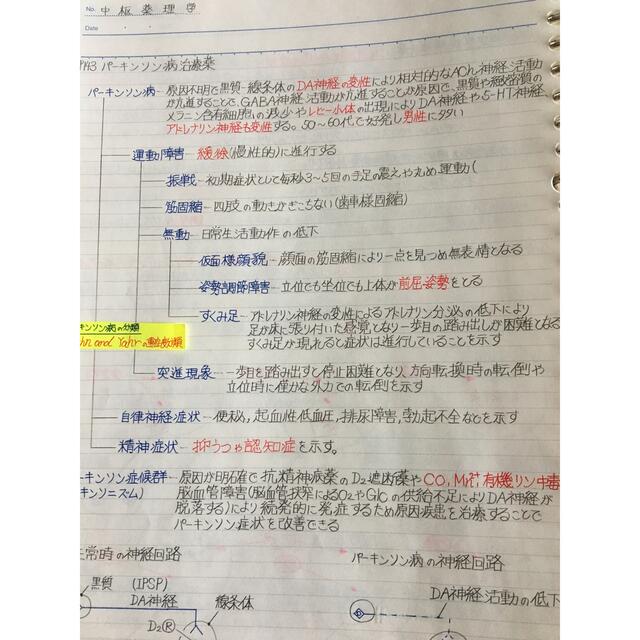 No. 中枢薬理学
Date
P143 パーキンソン病治療薬
パーキンソン病 - 原因不明で黒質-線条体のDA神経の変性により相対的なACh神経活動
が亢進することで、GABA神経活動が亢進することが原因で、黒質や緻密質の
メラニン含有細胞の減少やレビー小体の出現によりDA神経や5-HT神経、
アドレナリン神経も変性する。50~60代で好発し男性に多い
運動障害 - 緩徐(慢性的)に進行する
振戦 - 初期症状として毎秒3~5回の手足の震えや丸め運動(
筋固縮 - 四肢の動きがぎこちない(歯車様固縮)
無動 - 日常生活動作の低下
仮面様顔貌 - 顔面の筋固縮により一点を見つめ無表情となる
姿勢調節障害 - 立位でも坐位でも上体が前屈姿勢をとる
すくみ足 - アドレナリン神経の変性によるアドレナリン分泌の低下により
足が床に張り付いた感覚となり一歩目の踏み出しが困難となる
すくみ足が現れると症状は進行していることを示す
キンソン病の分類
hn and Yahrの重症度分類
突進現象 - 一歩目を踏み出すと停止困難となり、方向転換時の転倒や
立位時に僅かな外力での転倒を示す
自律神経症状 - 便秘,起立性低血圧,排尿障害,勃起不全などを示す
精神症状 - 抑うつや認知症を示す。
ーキンソン症候群 - 原因が明確で抗精神病薬のD2遮断薬やCO,Mn,有機リン中毒
キンソニズム) 脳血管障害(脳血管狭窄によるO2やGlcの供給不足によりDA神経が
脱落する)により続発的に発症するため原因疾患を治療することで
パーキンソン症状を改善できる
正常時の神経回路
パーキンソン病の神経回路
黒質 (IPSP)
DA神経 線条体
D2Ⓡ
DA神経活動の低下